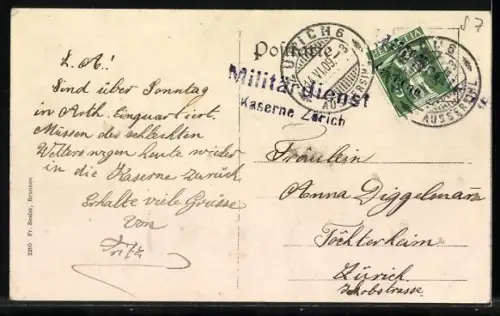 S 7
Postkarte
ZÜRICH 6
14.VI.09.-3
AUSSERSIHL
HELVETIA
AUSSERSIHL
Militärdienst
Kaserne Zürich
L. A!
Sind über Sonntag
in Arth. Einquartiert.
Müssen des schlechten
Wetters wegen heute wieder
in die Kaserne Zürich
Erhalte viele Grüsse
von
Fritz
Fräulein
Anna Diggelmann
Töchterheim
Zürich
Jakobstrasse